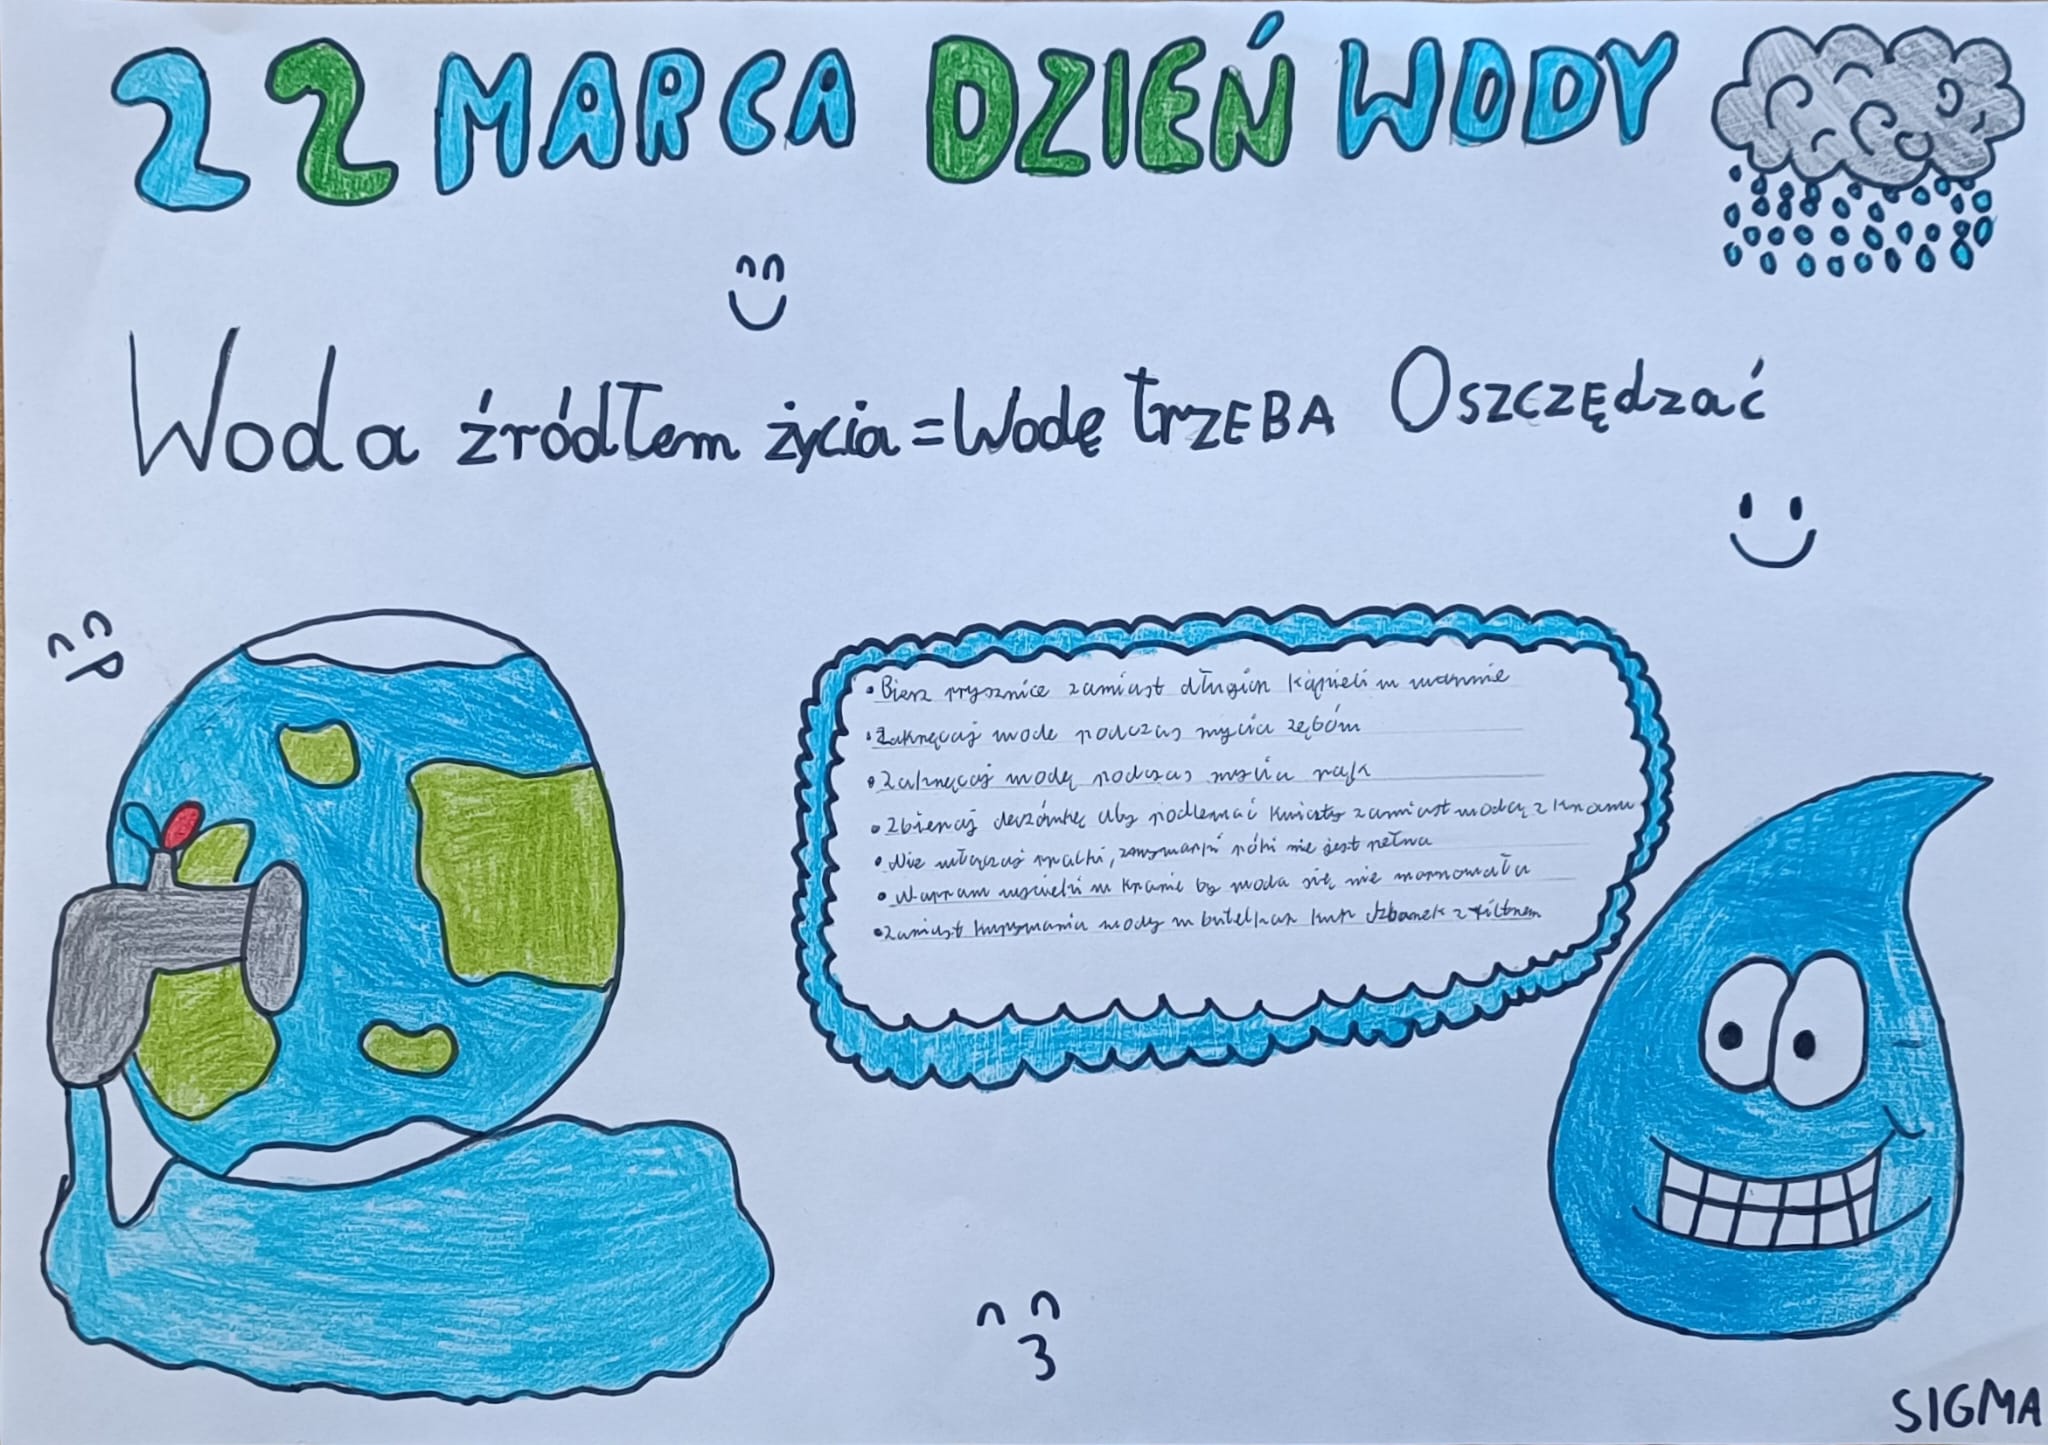 22 MARCA DZIEŃ WODY
Woda źródłem życia = Wodę trzEBA OszczĘdzać
• Bierz prysznice zamiast długich kąpieli w wannie
• Zakręcaj wode podczas mycia zębów
• Zakręcaj wodę podczas mycia rąk
• Zbieraj deszówkę aby podlewać kwiaty zamiast wodą z kranu
• Nie włączaj pralki, zmywarki póki nie jest pełna
• Napraw uszczelki w kranie by woda się nie marnowała
• Zamiast kupowania wody w butelkach kup dzbanek z filtrem
SIGMA